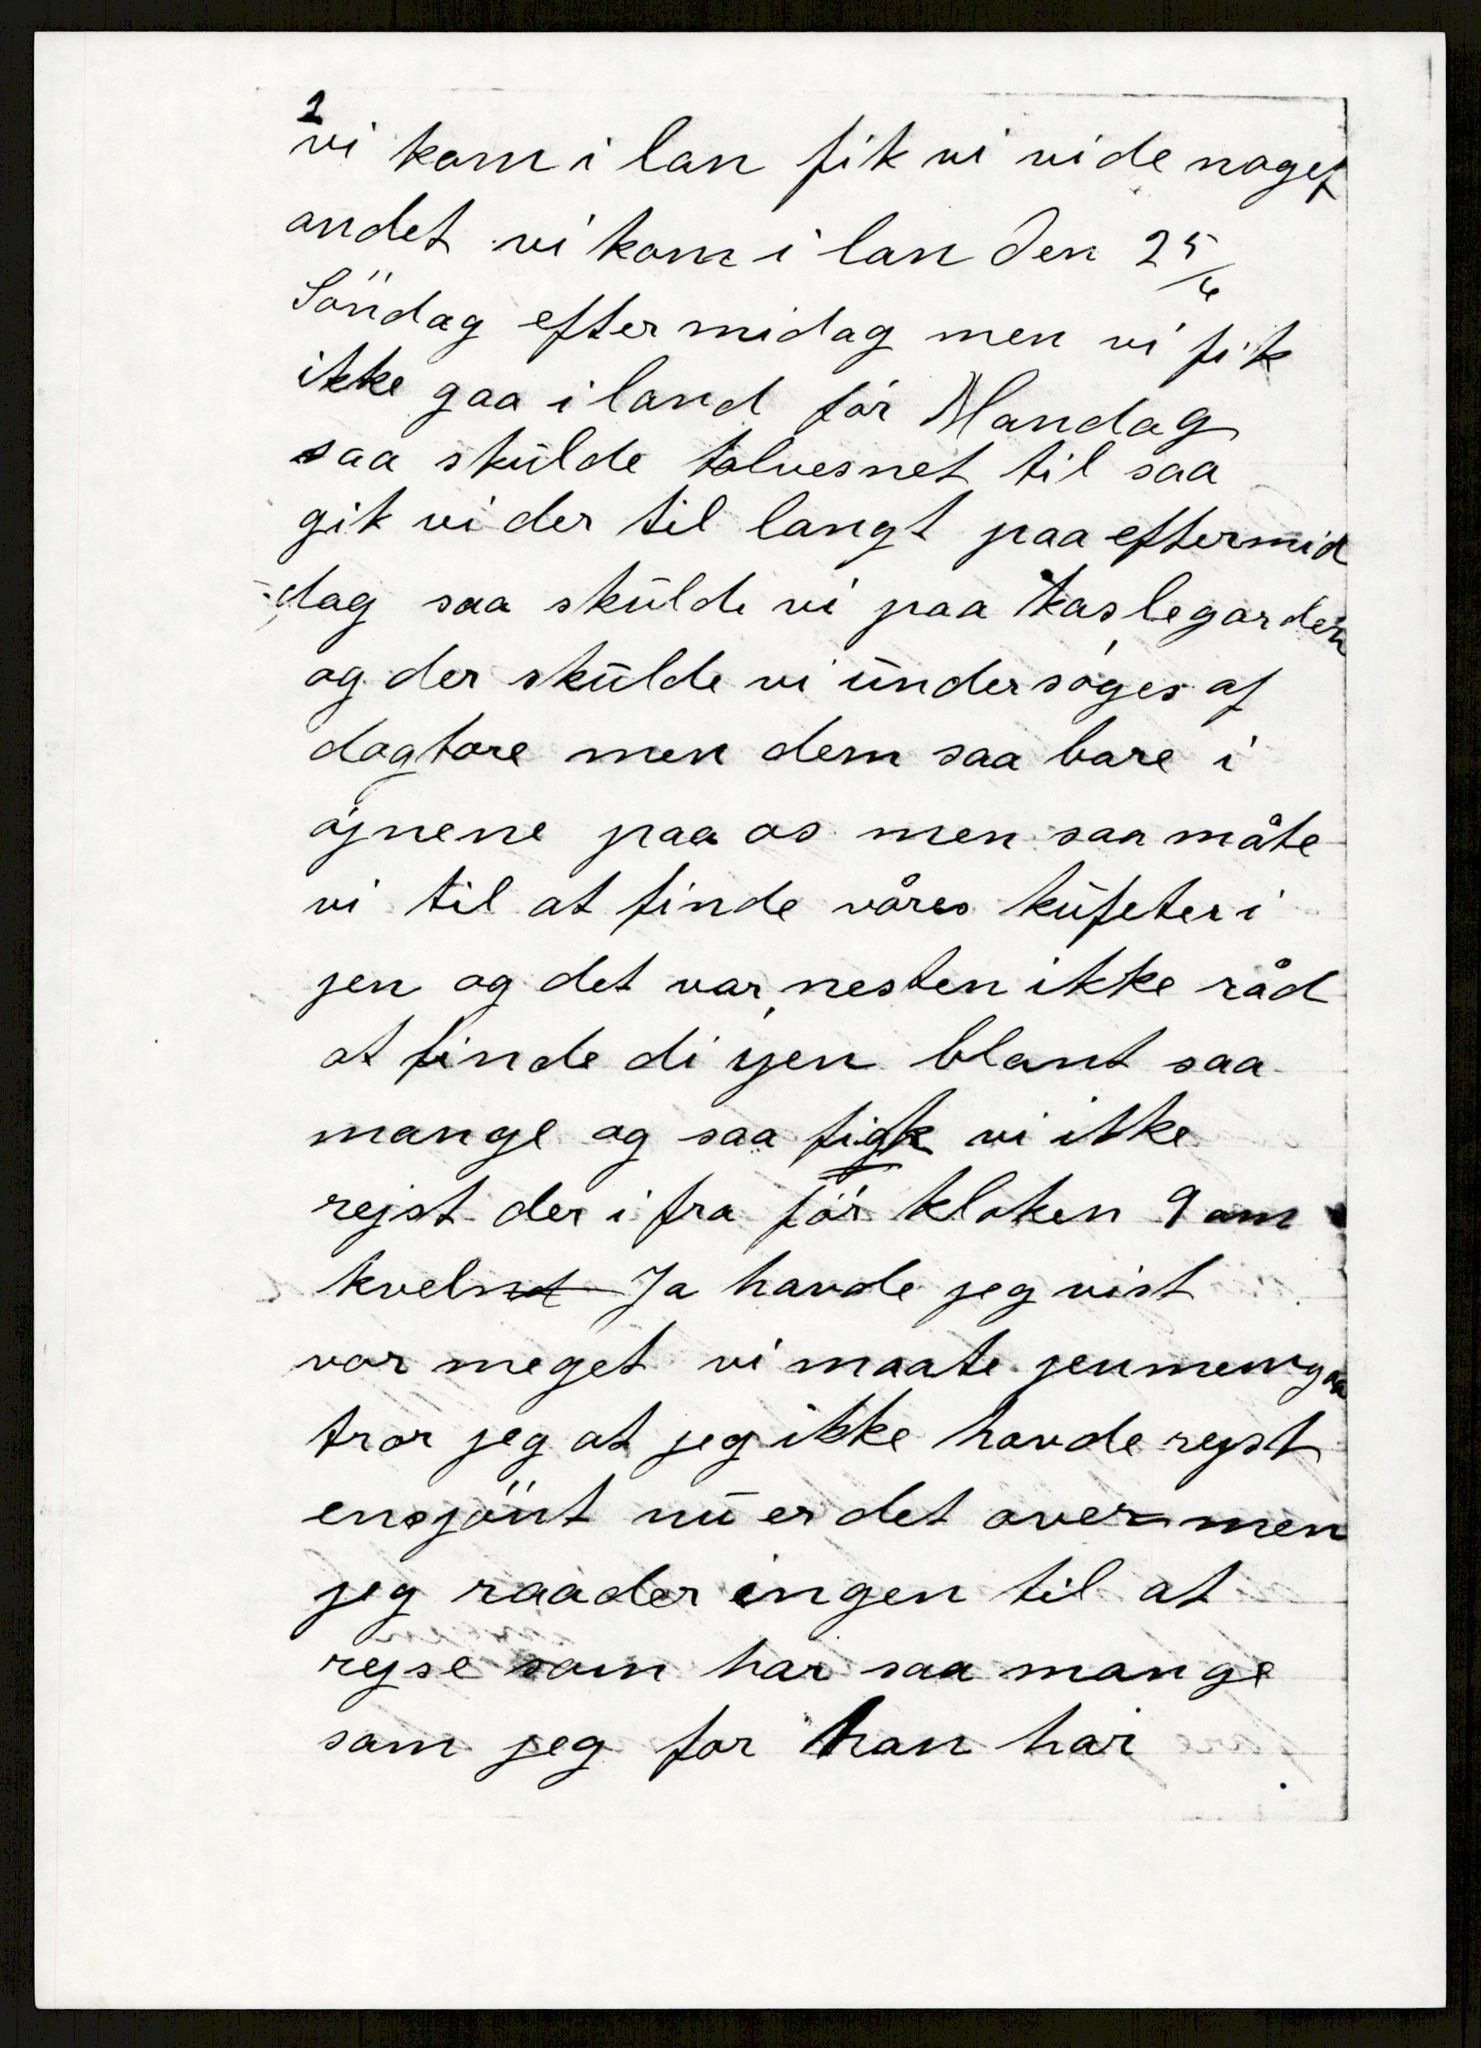 2
vi kom i lan fik vi vide noget
andet vi kom i lan den 25/6
Söndag eftermidag men vi fik
ikke gaa i land för Mandag
saa skulde tolvesnet til saa
gik vi der til langt paa eftermid
dag saa skulde vi paa kaslegarden
og der skulde vi undersøges af
dogtore men dem saa bare i
øjnene paa os men saa måte
vi til at finde våres kufeter i
jen og det var nesten ikke råd
at finde di ijen blant saa
mange og saa figk vi ikke
rejst der i fra för kloken 9 om
kvelnd Ja havde jeg vist
vor meget vi maate jenmemgaa
tror jeg at jeg ikke havde rejst
ensjönt nu er det over men
jeg raader ingen til at
rejse som har saa mange
som jeg for han har